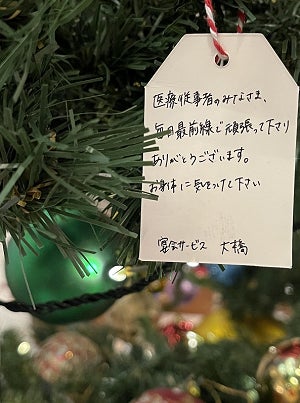 医療従事者のみなさま、
毎日最前線で頑張って下さり
ありがとうございます。
お身体に気をつけて下さい
宴会サービス 大橋